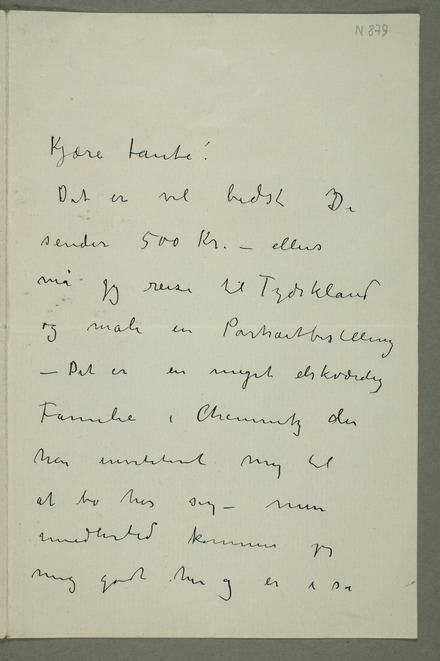 N 879
Kjære tante!
Det er vel bedst De
sender 500 Kr. – ellers
må jeg reise til Tydskland
og male en Portrætbestilling
– Det er en meget elskværdig
Familie i Chemnitz der
har inviteret mig til
at bo hos sig – men
imidlertid kommer jeg
mig godt her og er i så